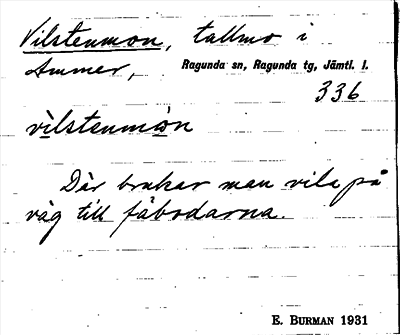 Vilstenmon, tallmo i
Ammer, Ragunda sn, Ragunda tg, Jämtl. l.
336
vìlstenmòn
Där brukar man vila på
väg till fäbodarna.
E. BURMAN 1931